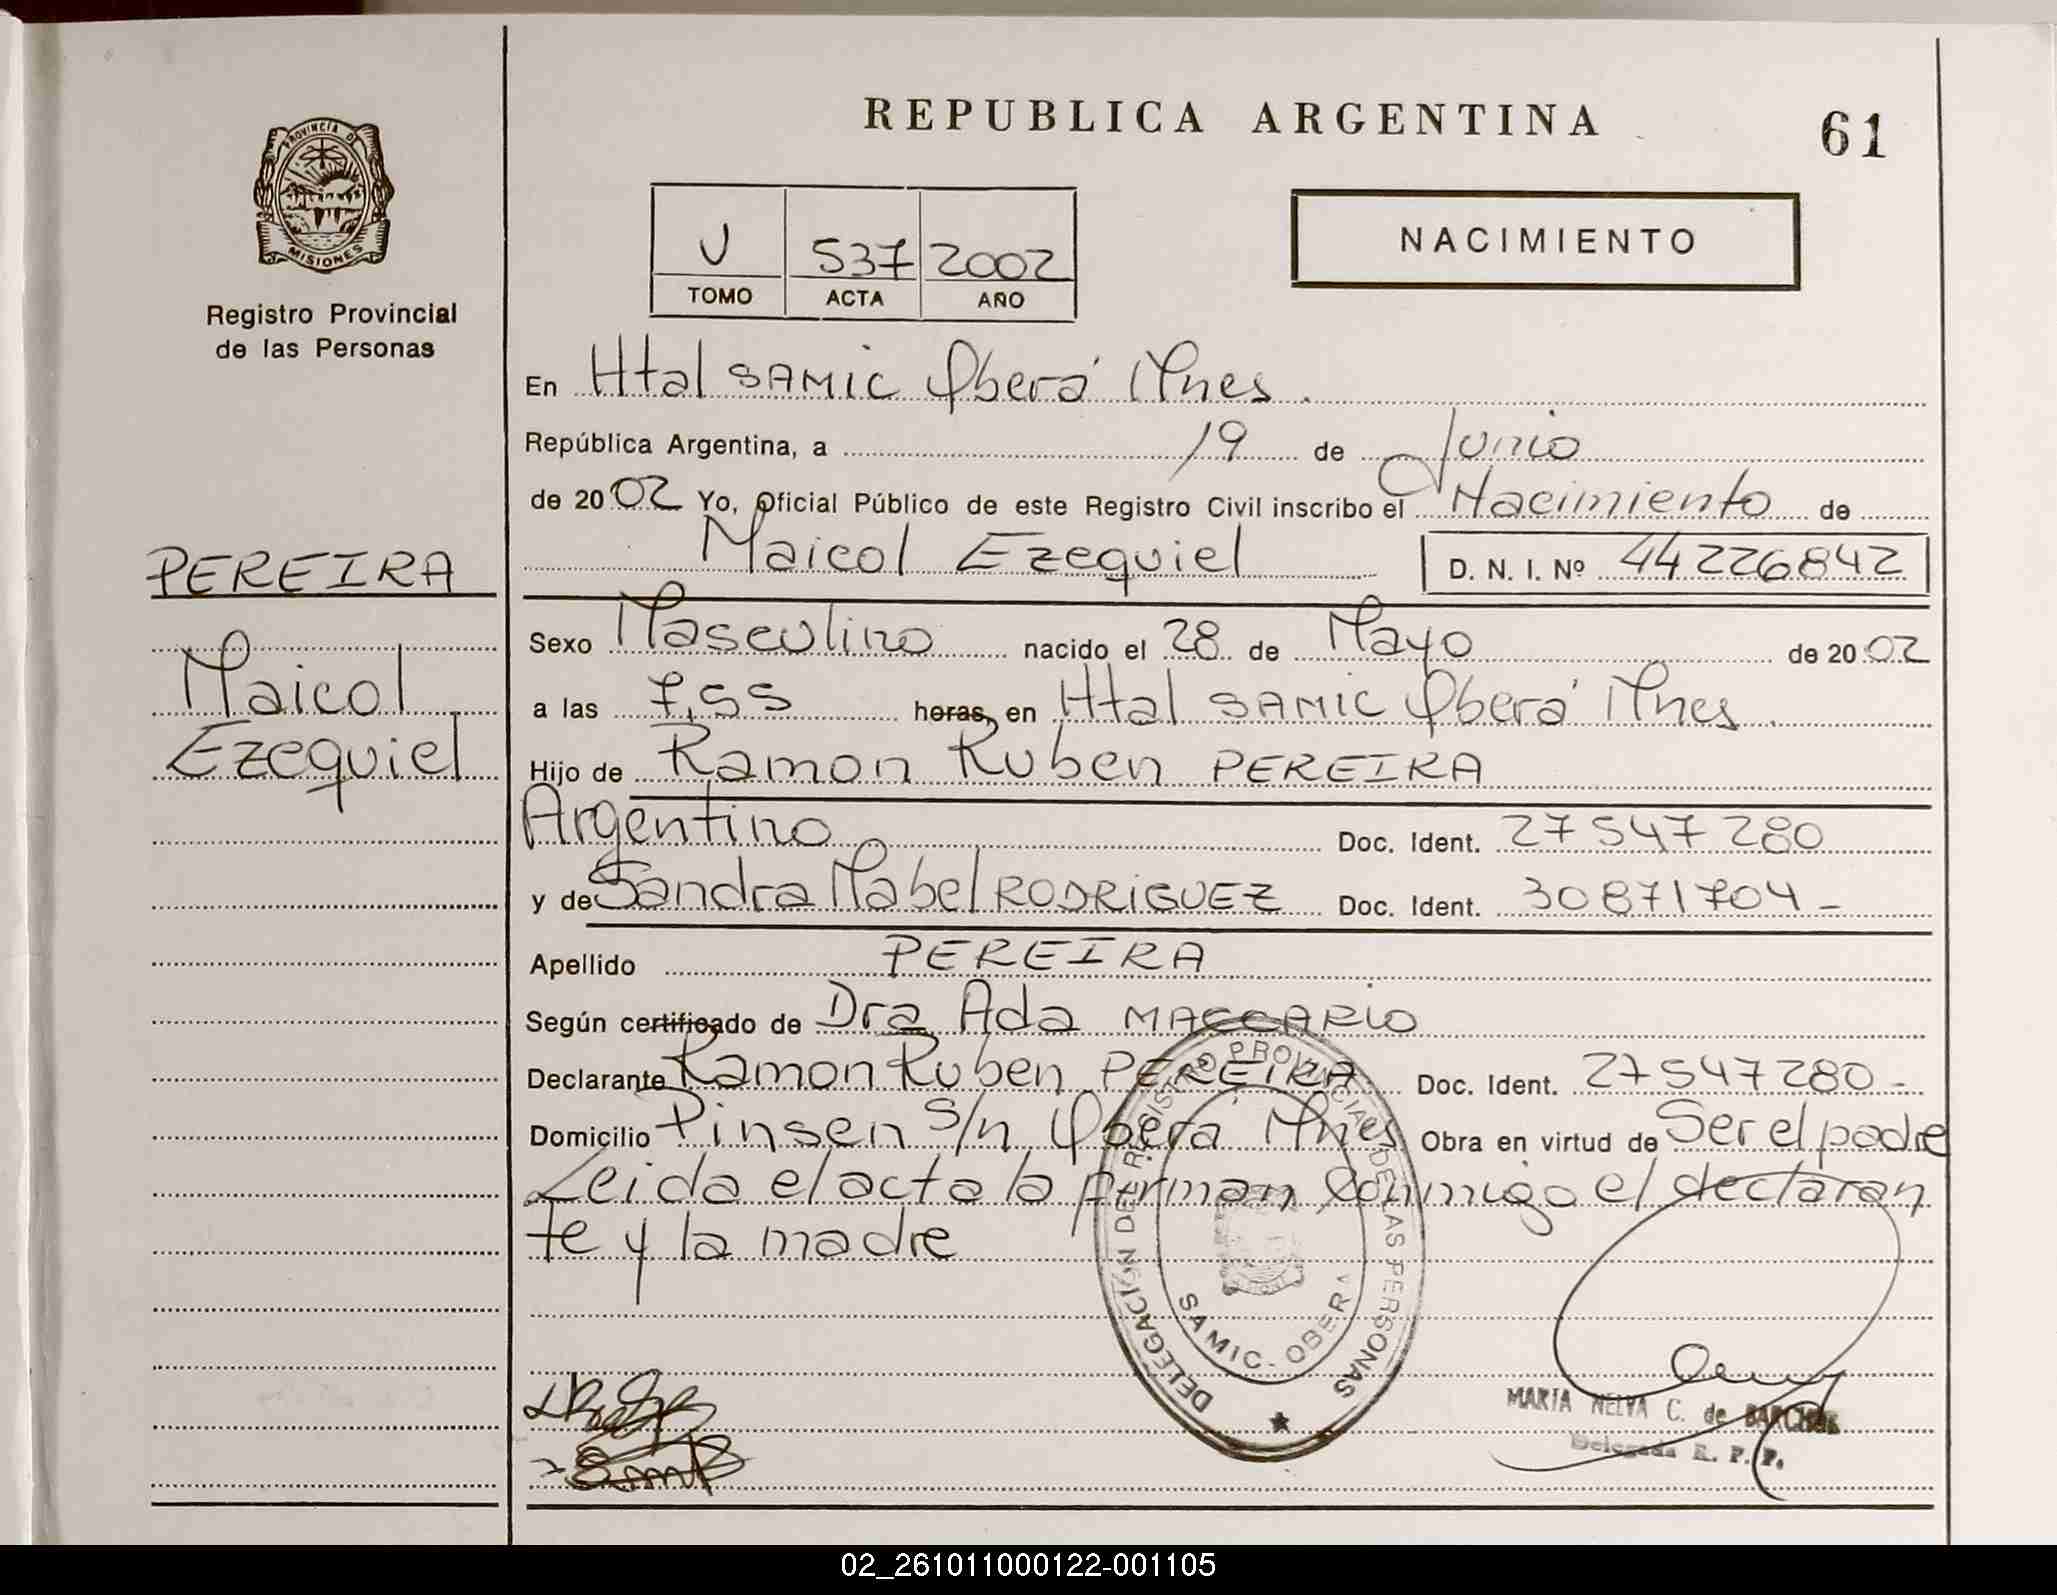 REPUBLICA ARGENTINA
61
PROVINCIA DE
MISIONES
Registro Provincial
de las Personas
U 537 2002
TOMO ACTA AÑO
NACIMIENTO
En Htal SAMIC Oberá Mnes.
República Argentina, a 19 de Junio
de 2002 Yo, Oficial Público de este Registro Civil inscribo el Nacimiento de
Maicol Ezequiel D. N. I. Nº 44226842
PEREIRA
Maicol
Ezequiel
Sexo Masculino nacido el 28 de Mayo de 2002
a las 7,55 horas, en Htal SAMIC Oberá Mnes.
Hijo de Ramon Ruben PEREIRA
Argentino Doc. Ident. 27547280
y de Sandra Mabel RODRIGUEZ Doc. Ident. 30871704-
Apellido PEREIRA
Según certificado de Dra Ada MACCARIO
Declarante Ramon Ruben PEREIRA Doc. Ident. 27547280-
Domicilio Pinsen s/n Oberá Mnes Obra en virtud de Ser el padre
Leida el acta la firman conmigo el declaran
te y la madre
DELEGACIÓN DEL REGISTRO PROVINCIAL DE LAS PERSONAS
SAMIC - OBERA
MARIA NELVA C. de
Delegada R. P. P.
02_261011000122-001105